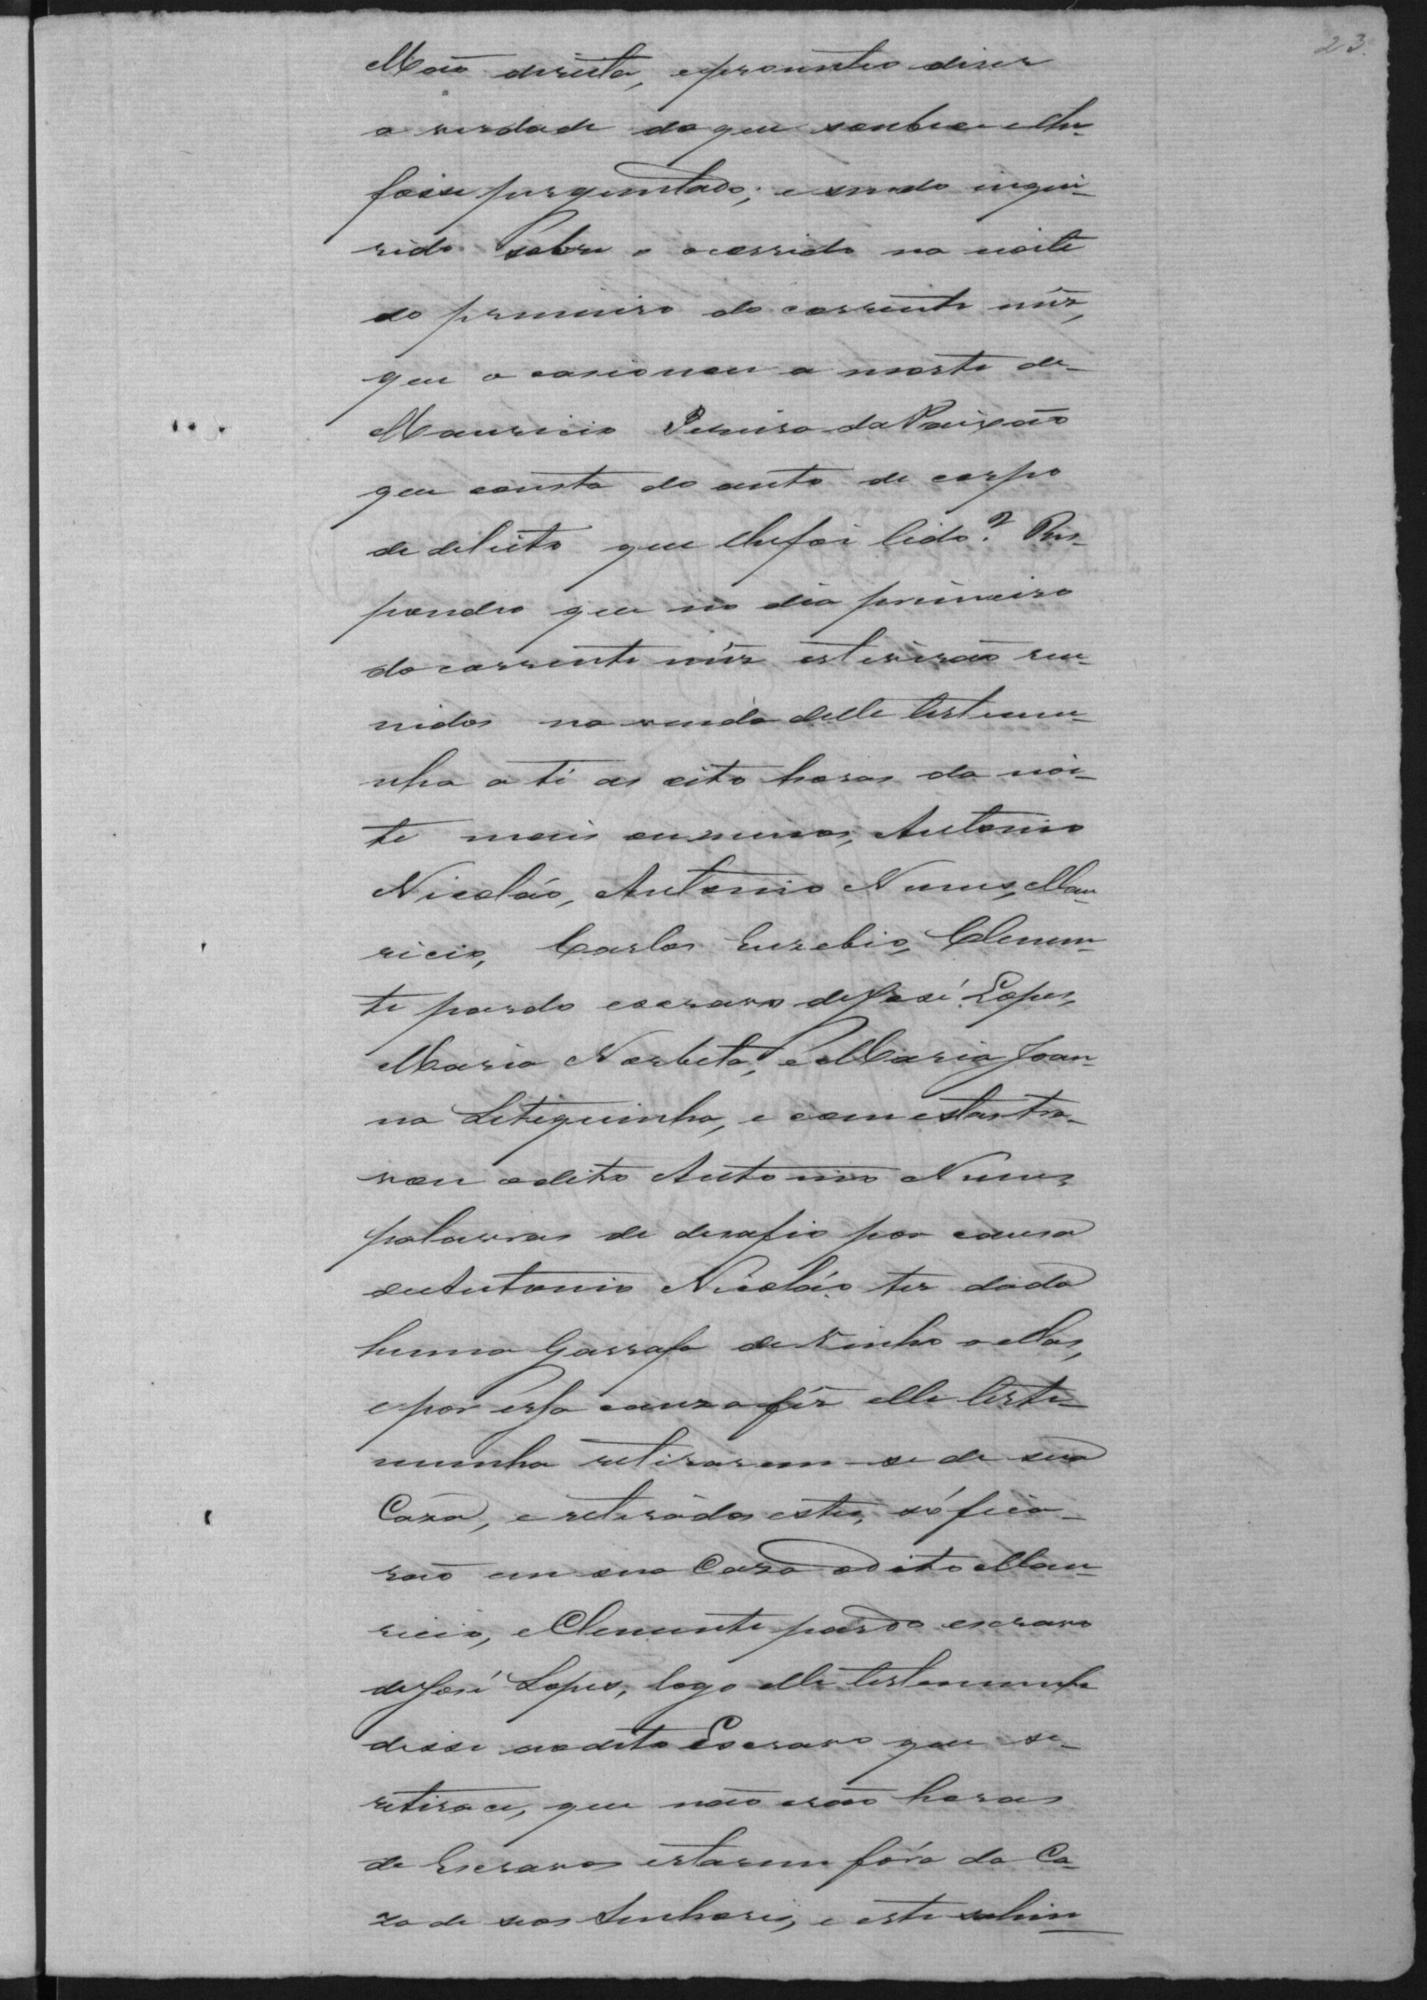 23.
Mão direita, e prometteo diser
a verdade do que soubese e lhe
fose perguntado; e sendo inqui-
rido sobre o ocorrido na noite
do primeiro do corrente mês,
que o casionou a morte de
Mauricio Pereira da Paixão
que consta do auto de corpo
de delicto que lhe foi lido? Res-
pondeo que no dia primeiro
do corrente mês estiverão reu-
nidos na venda delle testemu-
nha a té as oito horas da noi-
te mais ou menos, Antonio
Nicoláo, Antonio Nunes, Mau-
ricio, Carlos Euzebio, Clemen-
te pardo escravo de José Lopes,
Maria Norbeta, e Maria Joan-
na Litiguinha, e com estas tra-
vou o dito Antonio Nunes
palavras de desafio por causa
de Antonio Nicoláo ter dado
huma Garrafa de Vinho a ellas,
e por esta cauza fês elle teste-
munha retirarem-se de sua
Caza, e retirados estes, só fica-
rão em sua Caza o dito Mau-
ricio, e Clemente pardo escravo
de José Lopes, logo elle testemunha
disse ao dito Escravo que se-
retirace, que não erão horas
de Escravos estarem fóra da Ca-
za de seos Senhores, e este sahin